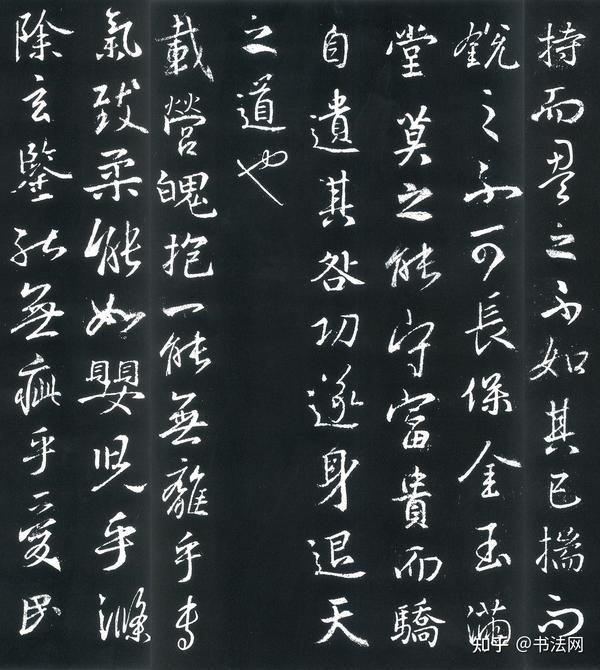 持而盈之不如其已揣而
銳之不可長保金玉滿
堂莫之能守富貴而驕
自遺其咎功遂身退天
之道也
載營魄抱一能無離乎専
氣致柔能如嬰兒乎滌
除玄鑒能無疵乎愛民
知乎 @书法网